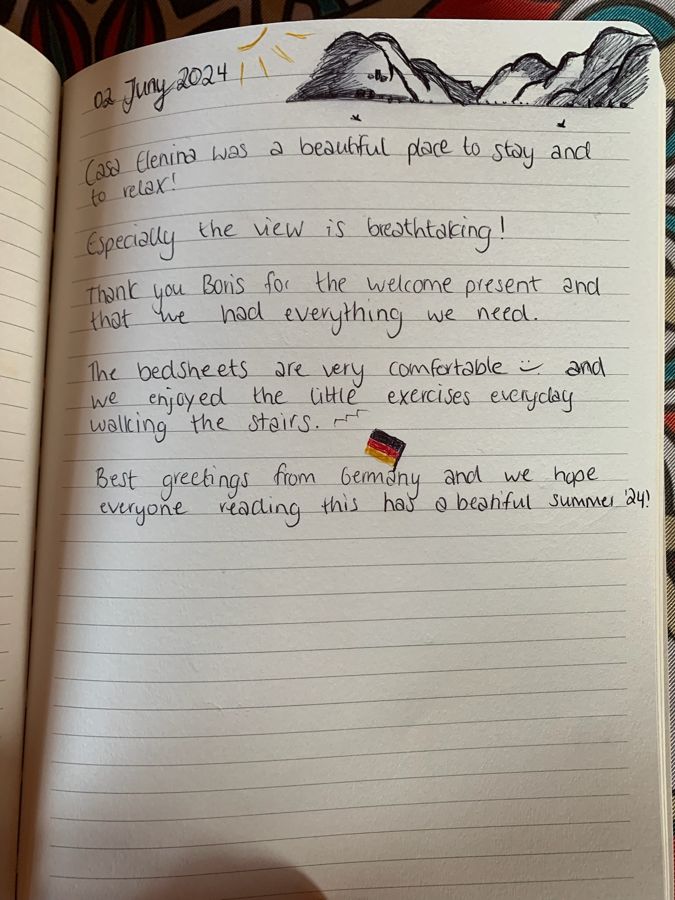 02 Juny 2024
Casa Elenina was a beautiful place to stay and
to relax!
Especially the view is breathtaking!
Thank you Boris for the welcome present and
that we had everything we need.
The bedsheets are very comfortable and
we enjoyed the little exercises everyday
walking the stairs.
Best greetings from Germany and we hope
everyone reading this has a beatiful summer '24!